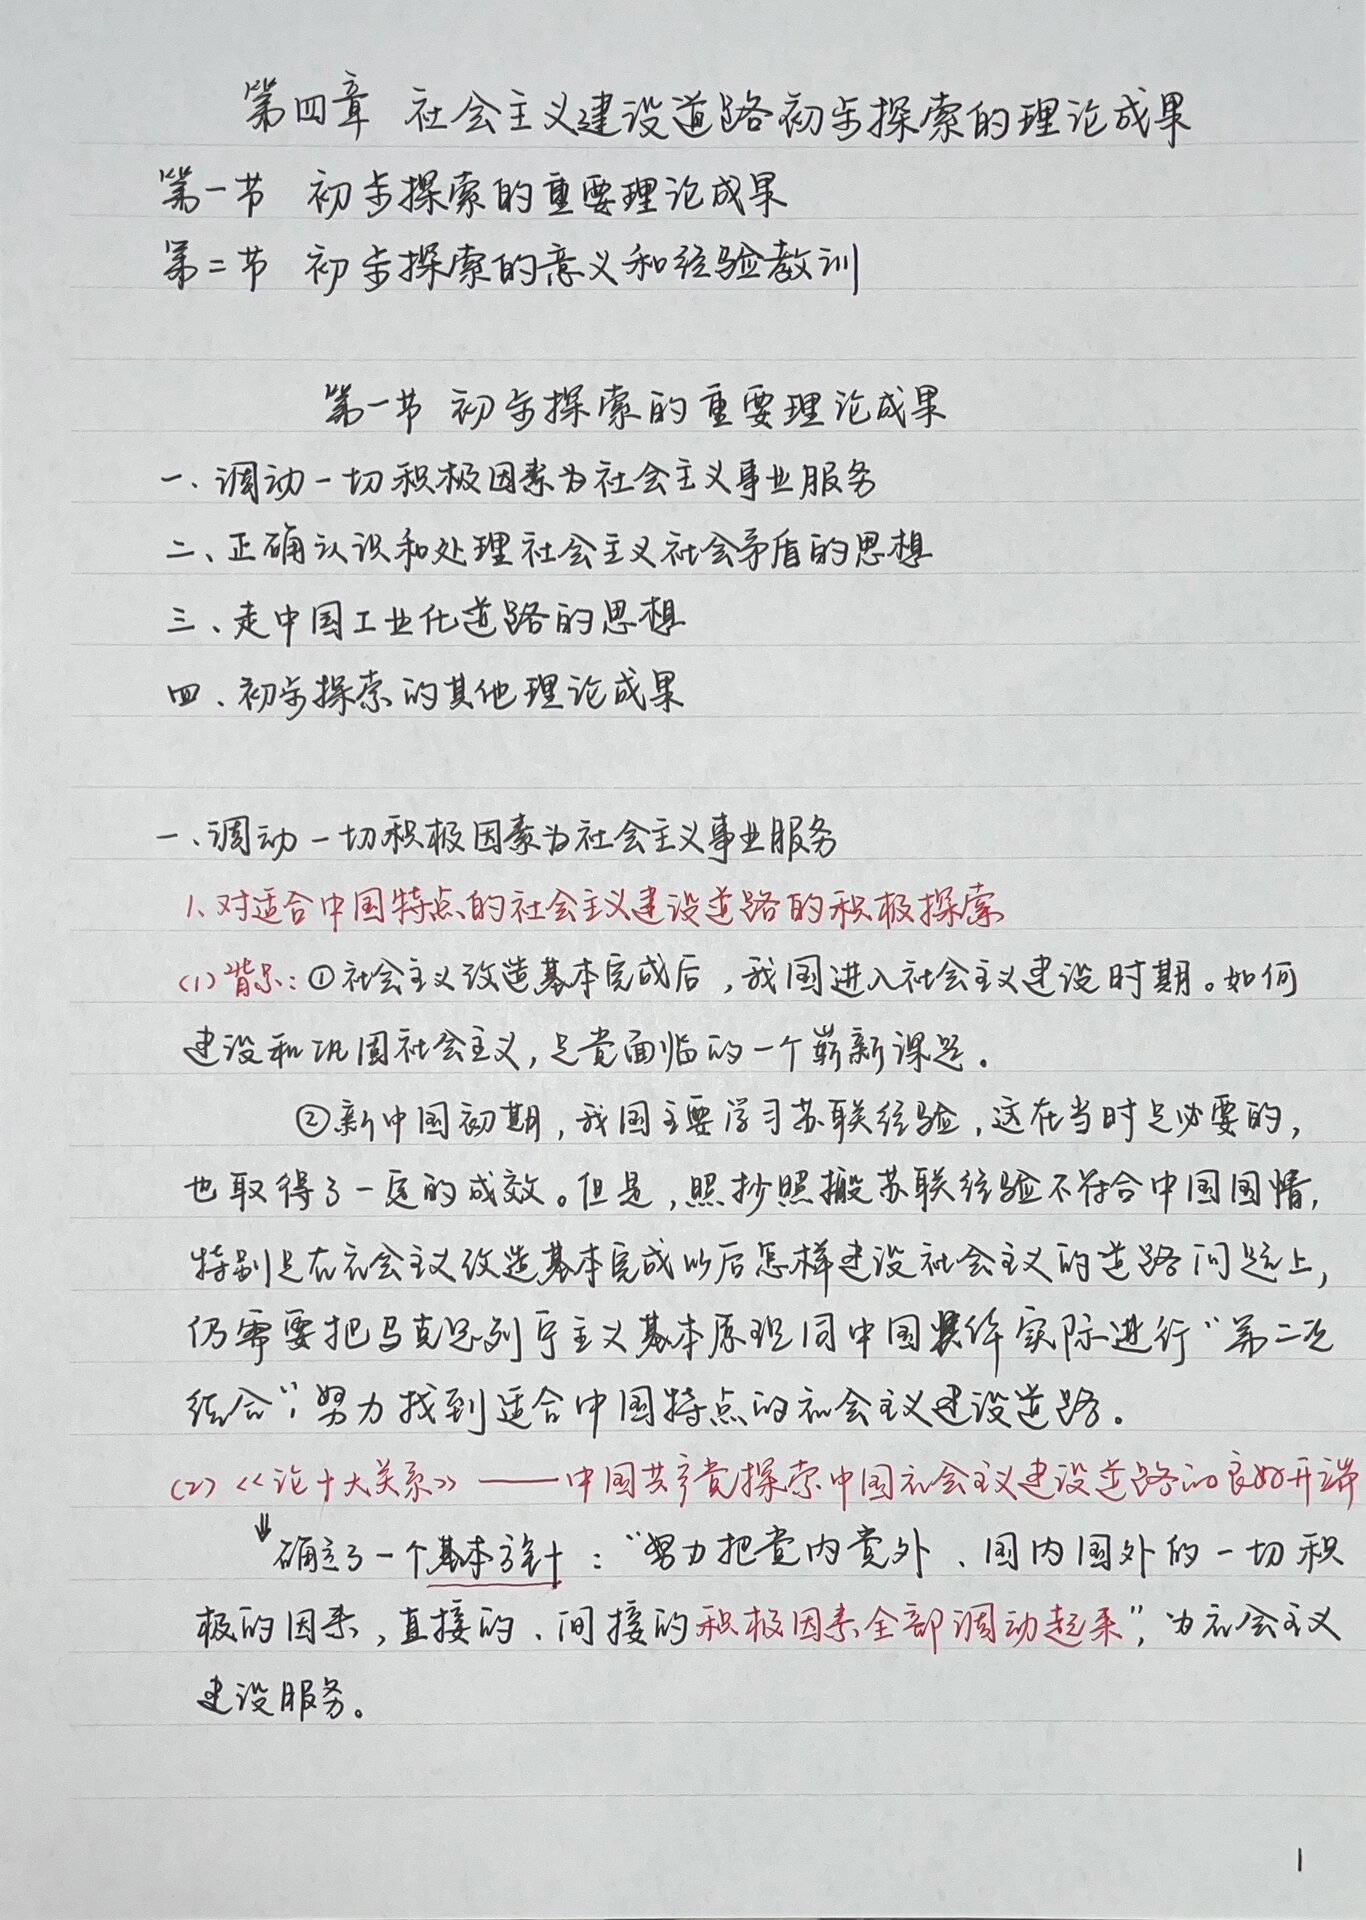 第四章 社会主义建设道路初步探索的理论成果
第一节 初步探索的重要理论成果
第二节 初步探索的意义和经验教训
第一节 初步探索的重要理论成果
一、调动一切积极因素为社会主义事业服务
二、正确认识和处理社会主义社会矛盾的思想
三、走中国工业化道路的思想
四、初步探索的其他理论成果
一、调动一切积极因素为社会主义事业服务
1、对适合中国特点的社会主义建设道路的积极探索
(1)背景:①社会主义改造基本完成后,我国进入社会主义建设时期。如何
建设和巩固社会主义,是党面临的一个崭新课题。
②新中国初期,我国主要学习苏联经验,这在当时是必要的,
也取得了一定的成效。但是,照抄照搬苏联经验不符合中国国情,
特别是在社会主义改造基本完成以后怎样建设社会主义的道路问题上,
仍需要把马克思列宁主义基本原理同中国具体实际进行“第二次
结合”,努力找到适合中国特点的社会主义建设道路。
(2)《论十大关系》——中国共产党探索中国社会主义建设道路的良好开端
↓确立了一个基本方针:“努力把党内党外、国内国外的一切积
极的因素,直接的、间接的积极因素全部调动起来”,为社会主义
建设服务。
1